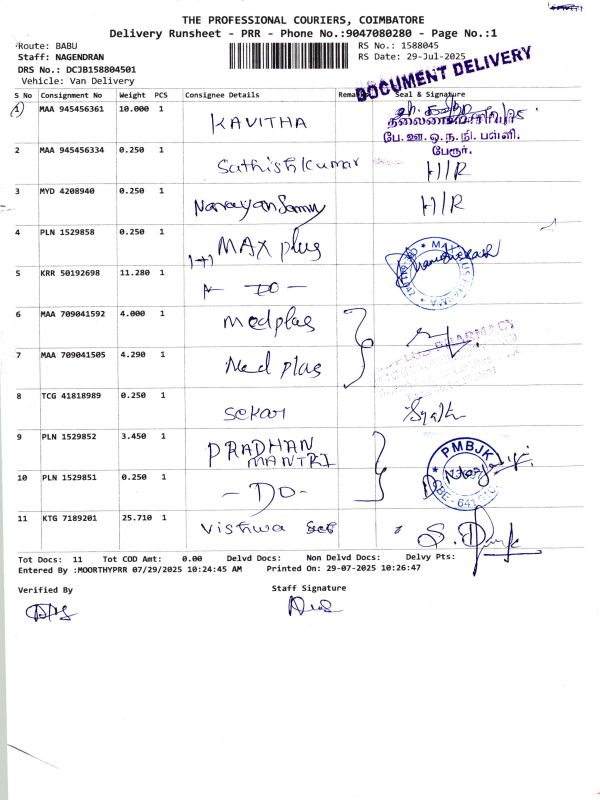 THE PROFESSIONAL COURIERS, COIMBATORE
Delivery Runsheet - PRR - Phone No.:9047080280 - Page No.:1
Route: BABU
Staff: NAGENDRAN
DRS No.: DCJB158804501
Vehicle: Van Delivery
RS No.: 1588045
RS Date: 29-Jul-2025
DOCUMENT DELIVERY
S No Consignment No Weight PCS Consignee Details Remarks Seal & Signature
1 MAA 945456361 10.000 1 KAVITHA
பே.ஊ.ஒ.ந.நி. பள்ளி.
பேரூர்.
2 MAA 945456334 0.250 1 Sathishkumar H/R
3 MYD 4208940 0.250 1 NarayanSamy H/R
4 PLN 1529858 0.250 1 1+1 MAX plus
5 KRR 50192698 11.280 1 - DO -
6 MAA 709041592 4.000 1 Medplas
7 MAA 709041505 4.290 1 Med plas
8 TCG 41818989 0.250 1 Sekar
9 PLN 1529852 3.450 1 PRADHAN MANTRI
PMBJK
10 PLN 1529851 0.250 1 - DO -
11 KTG 7189201 25.710 1 Vishwa
Tot Docs: 11 Tot COD Amt: 0.00 Delvd Docs: Non Delvd Docs: Delvy Pts:
Entered By :MOORTHYPRR 07/29/2025 10:24:45 AM Printed On: 29-07-2025 10:26:47
Verified By
Staff Signature